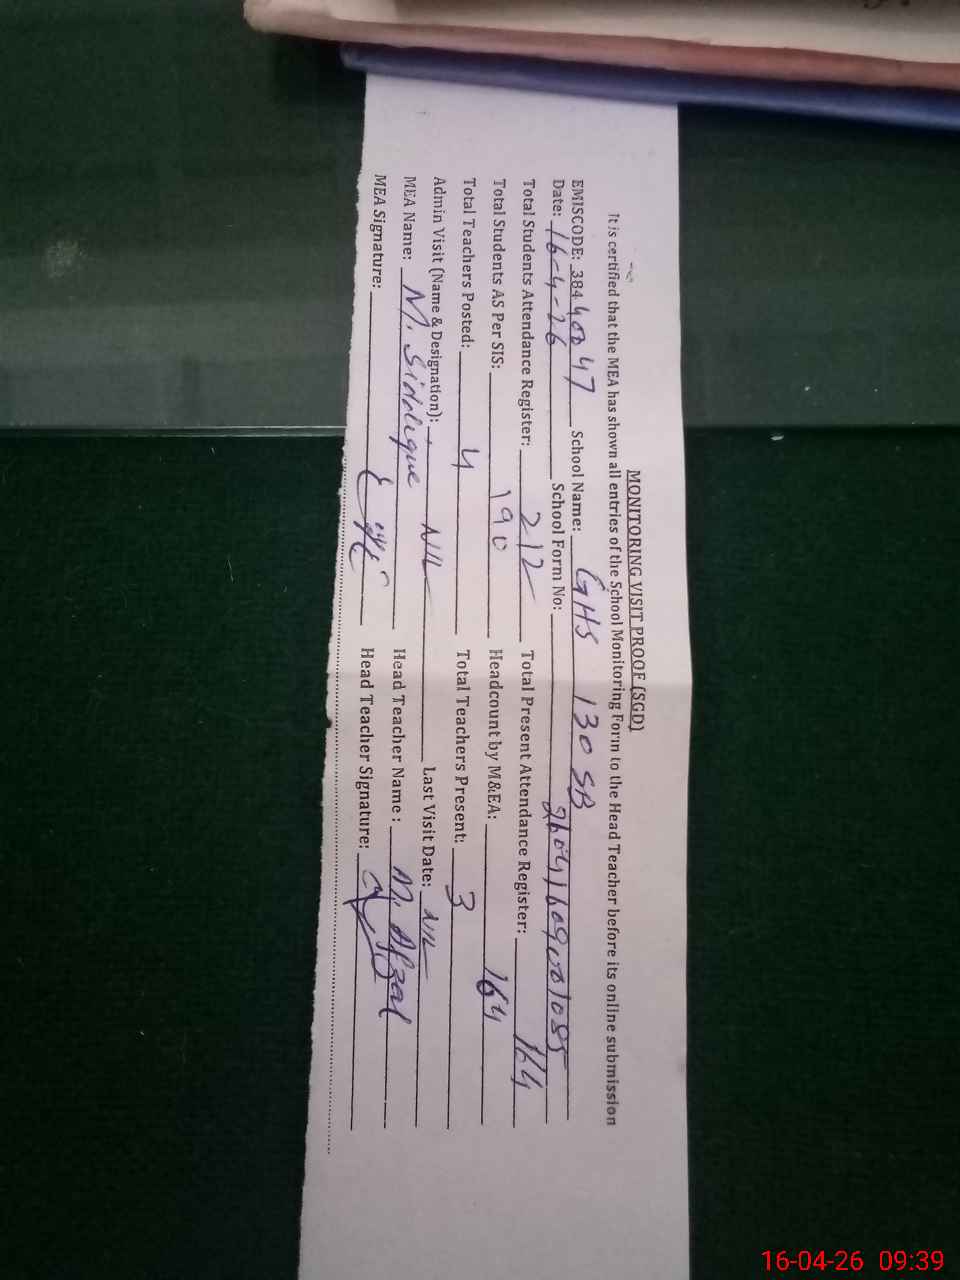 MONITORING VISIT PROOF (SGD)
It is certified that the MEA has shown all entries of the School Monitoring Form to the Head Teacher before its online submission
EMISCODE: 38440047 School Name: GHS 130 SB
Date: 16-4-26 School Form No:
Total Students Attendance Register: 212 Total Present Attendance Register: 164
Total Students AS Per SIS: 190 Headcount by M&EA: 164
Total Teachers Posted: 4 Total Teachers Present: 3
Admin Visit (Name & Designation): Nil Last Visit Date: Nil
MEA Name: M. Siddique Head Teacher Name : M. Afzal
MEA Signature: Head Teacher Signature:
16-04-26 09:39